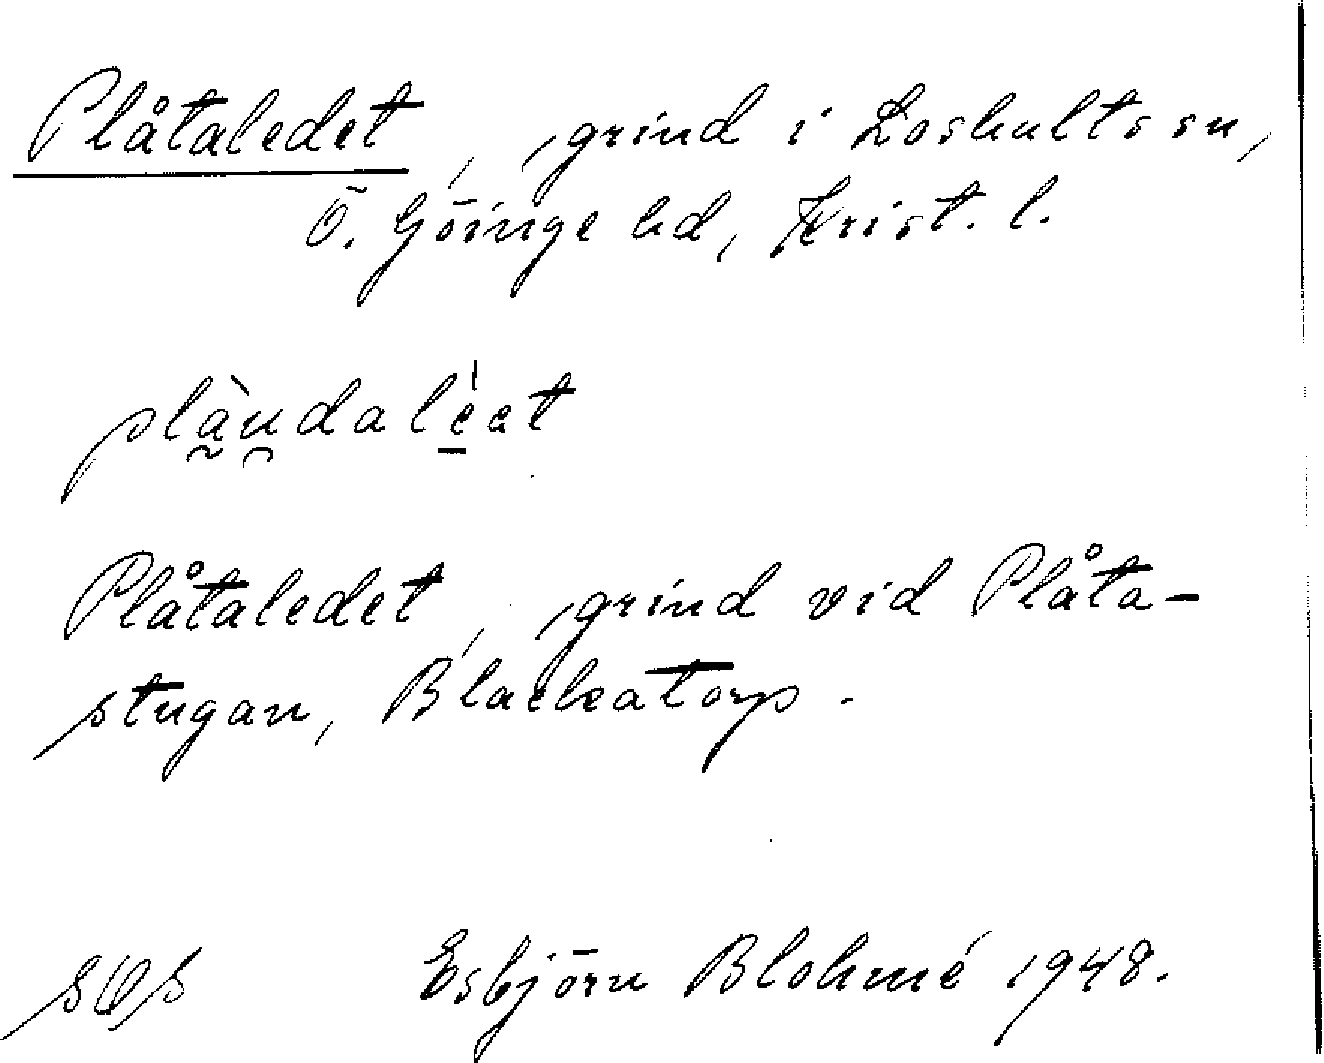 Plåtaledet, grind i Loshults sn,
Ö. Göinge hd, Krist. l.
plà̰u̯dalé̱et
Plåtaledet, grind vid Plåta-
stugan, Blackatorp.
Esbjörn Blohmé 1948.